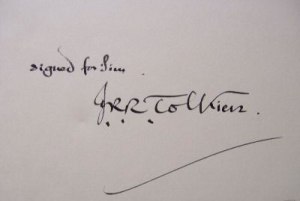 signed for Jim
J.R.R. Tolkien.